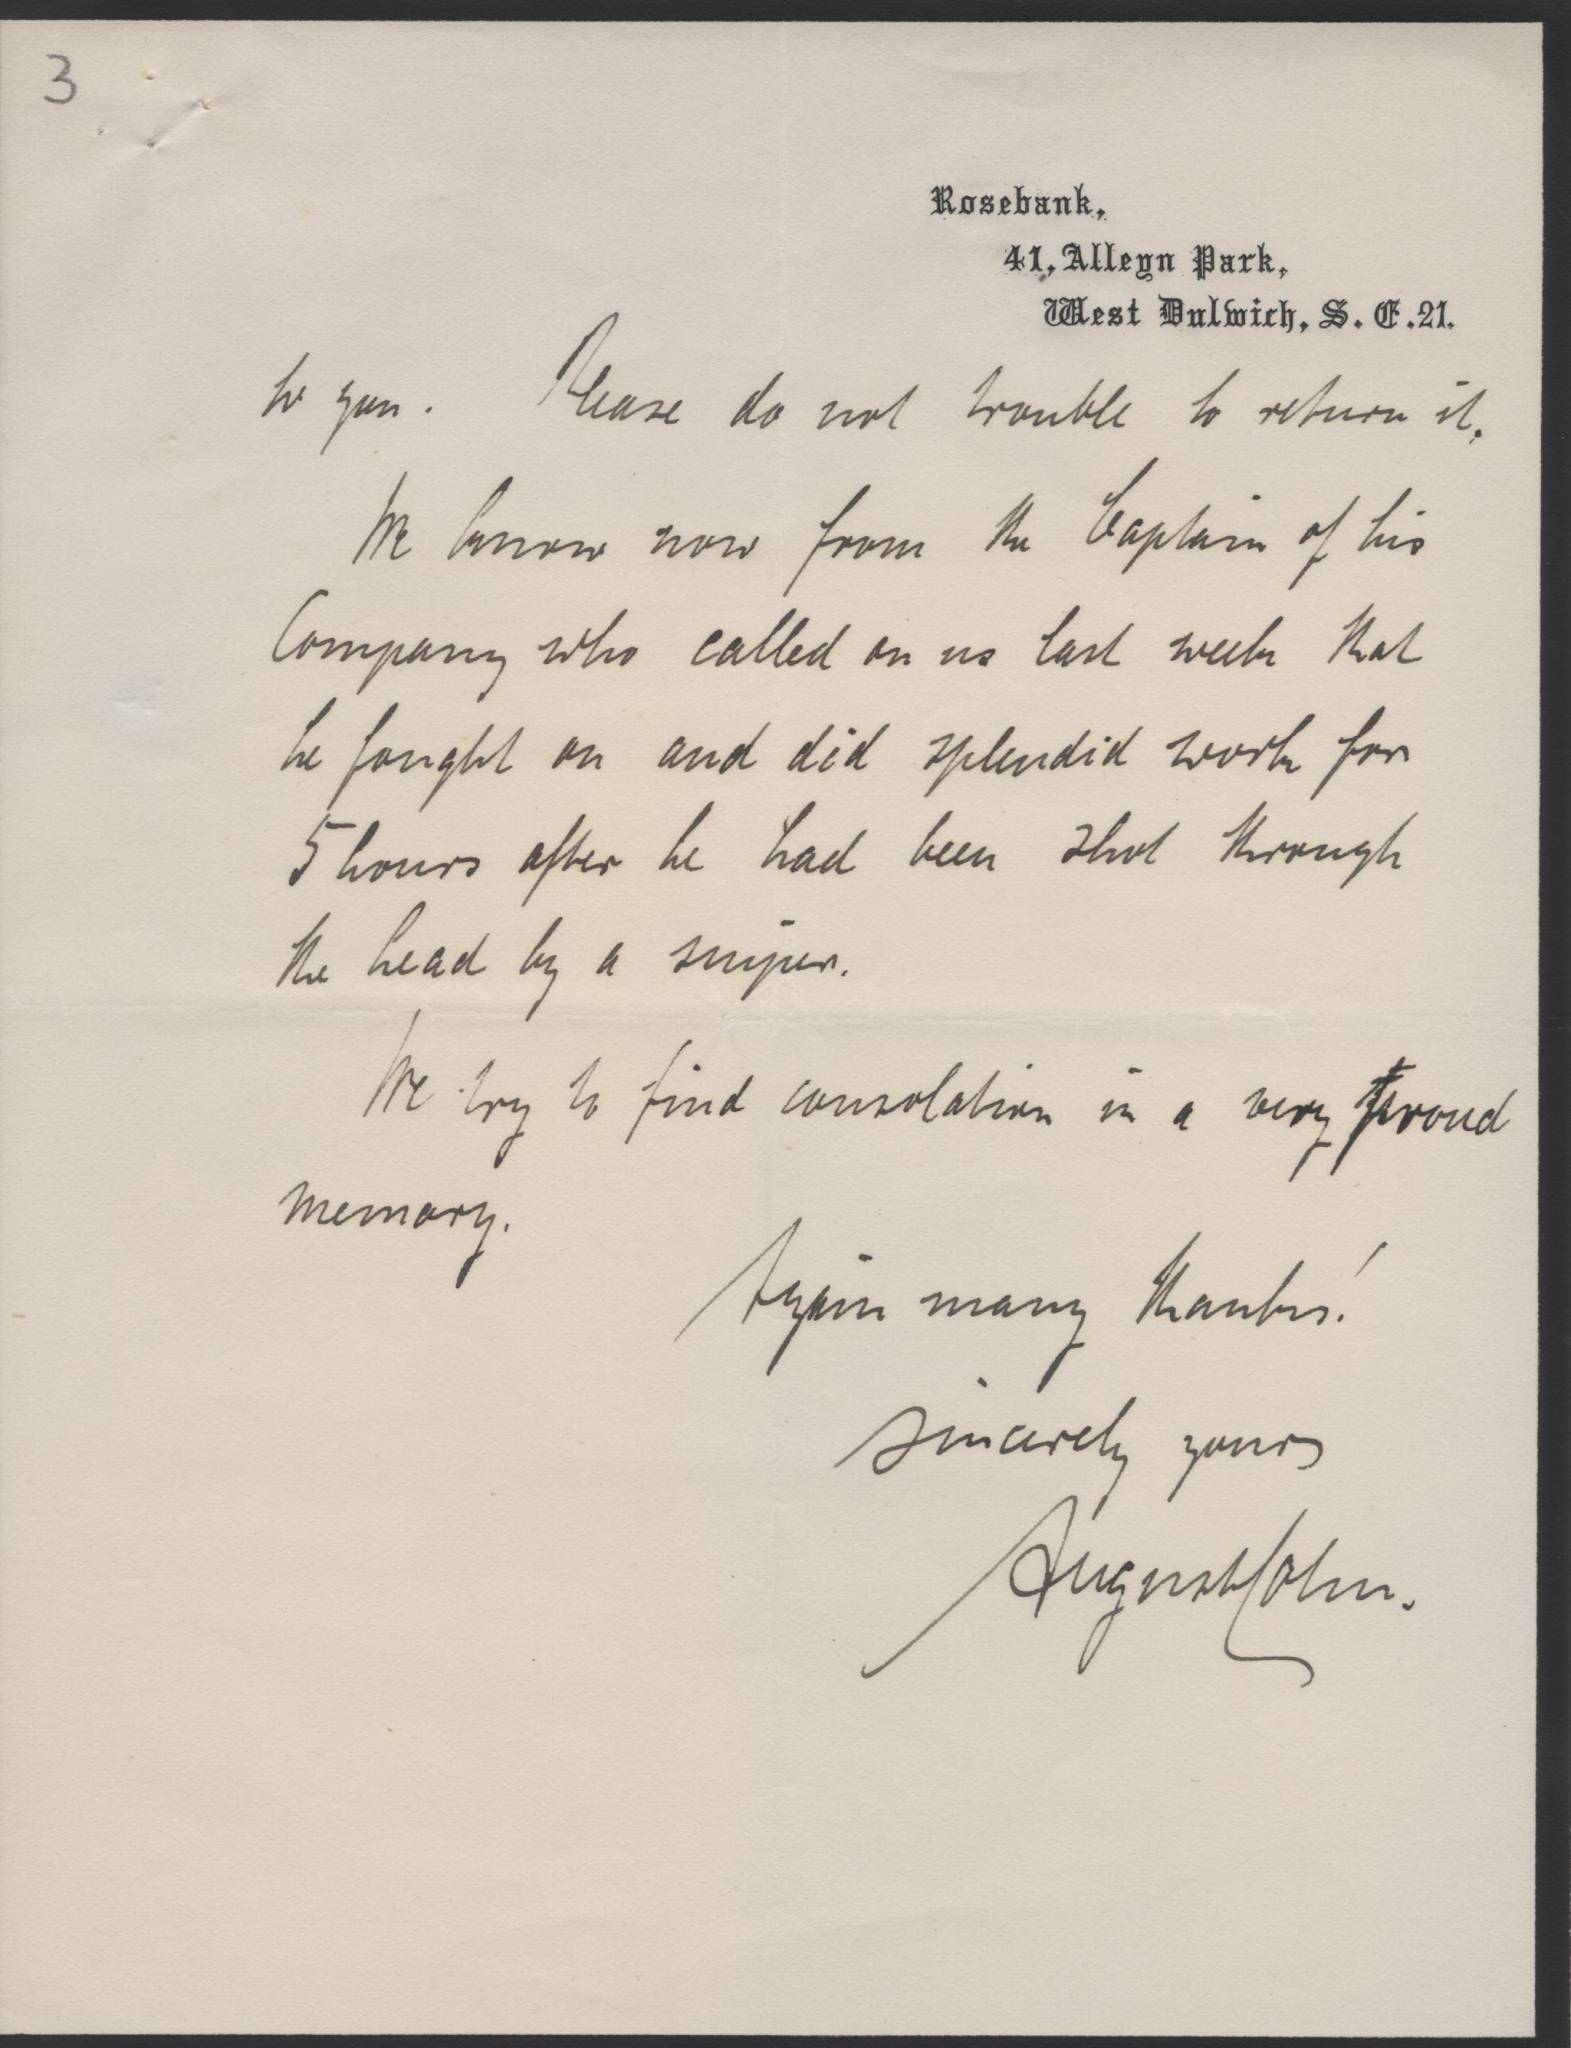 3
Rosebank,
41, Alleyn Park,
West Dulwich, S. E. 21.
to you. Please do not trouble to return it.
We know now from the Captain of his
Company who called on us last week that
he fought on and did splendid work for
5 hours after he had been shot through
the head by a sniper.
We try to find consolation in a very proud
memory.
Again many thanks!
Sincerely yours
August Cohn.